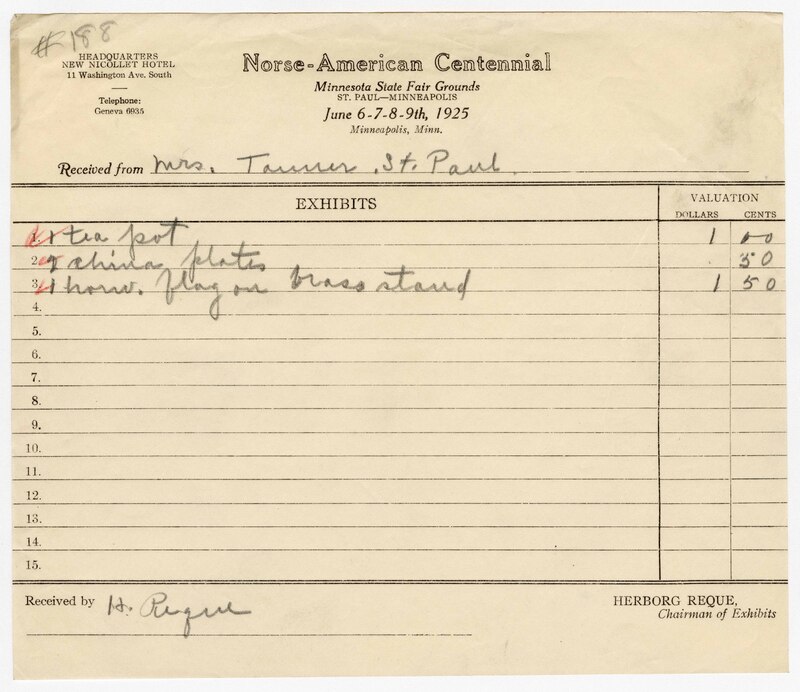 # 188
HEADQUARTERS
NEW NICOLLET HOTEL
11 Washington Ave. South
Telephone:
Geneva 6935
Norse-American Centennial
Minnesota State Fair Grounds
ST. PAUL—MINNEAPOLIS
June 6-7-8-9th, 1925
Minneapolis, Minn.
Received from Mrs. Tanner, St. Paul.
EXHIBITS VALUATION
DOLLARS CENTS
1. 1 tea pot 1 00
2. 2 china plates 50
3. 1 norw. flag on brass stand 1 50
4.
5.
6.
7.
8.
9.
10.
11.
12.
13.
14.
15.
Received by H. Reque
HERBORG REQUE,
Chairman of Exhibits